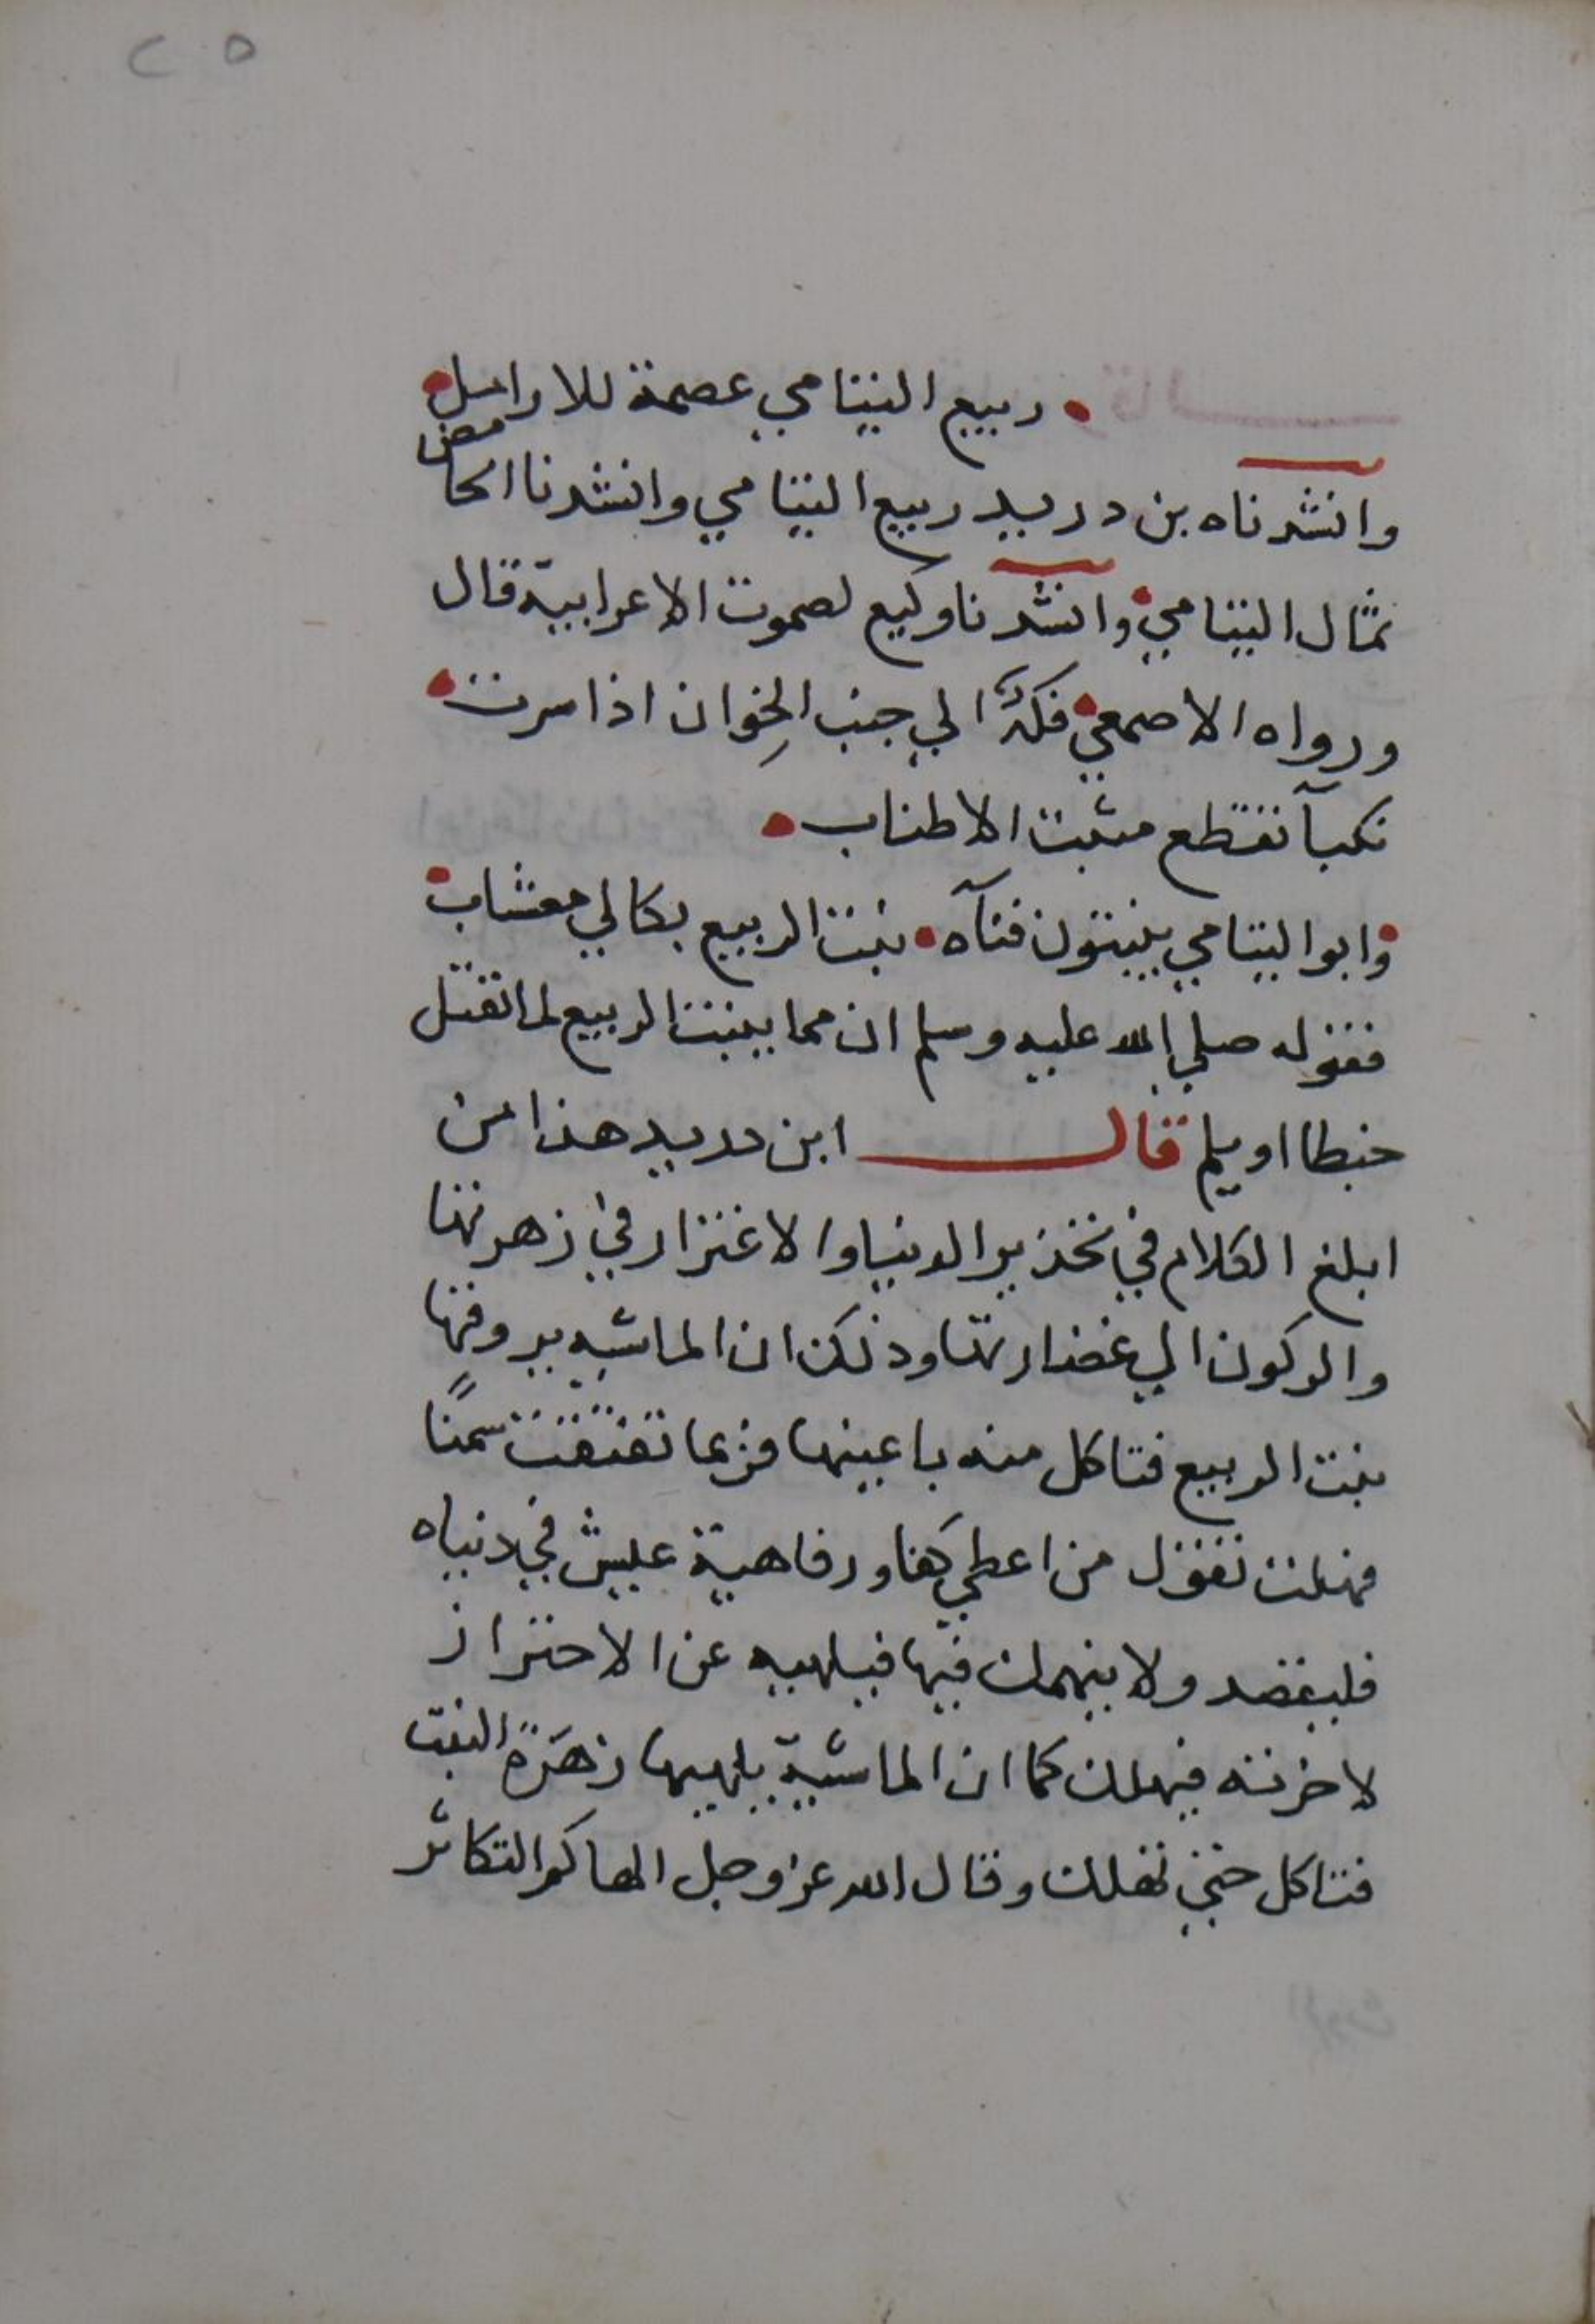 ٢٥
ربيع اليتامي عصمة للارامل
وانشدناه بن دريد ربيع اليتامي وانشدنا الحامض
ثمال اليتامي وانشدنا وكيع لصموت الاعرابية قال
ورواه الاصمعي فكهٌ الي جنب الخِوان اذا سرت
نكبآ تقطع مثبت الاطناب
وابو اليتامي ينبتون فنآه نبت الربيع بكالي معشاب
فقوله صلي الله عليه وسلم ان مما ينبت الربيع لما تقتل
حبطا او يلم قال ابن دريد هذا من
ابلغ الكلام في تحذير الدنيا والاغترار في زهرتها
والركون الي غضارتها وذلك ان الماشيه يروقها
نبت الربيع فتاكل منه باعينها فربما تفتقت سمنًا
فهلكت تقول من اعطي كفاو رفاهية عيش في دنياه
فليقصد ولا ينهمك فيها فيلهيه عن الاحتراز
لاخرته فيهلك كما ان الماشيّة يلهيها زهرة النبت
فتاكل حتي تهلك وقال الله عز وجل الهاكم التكاثر